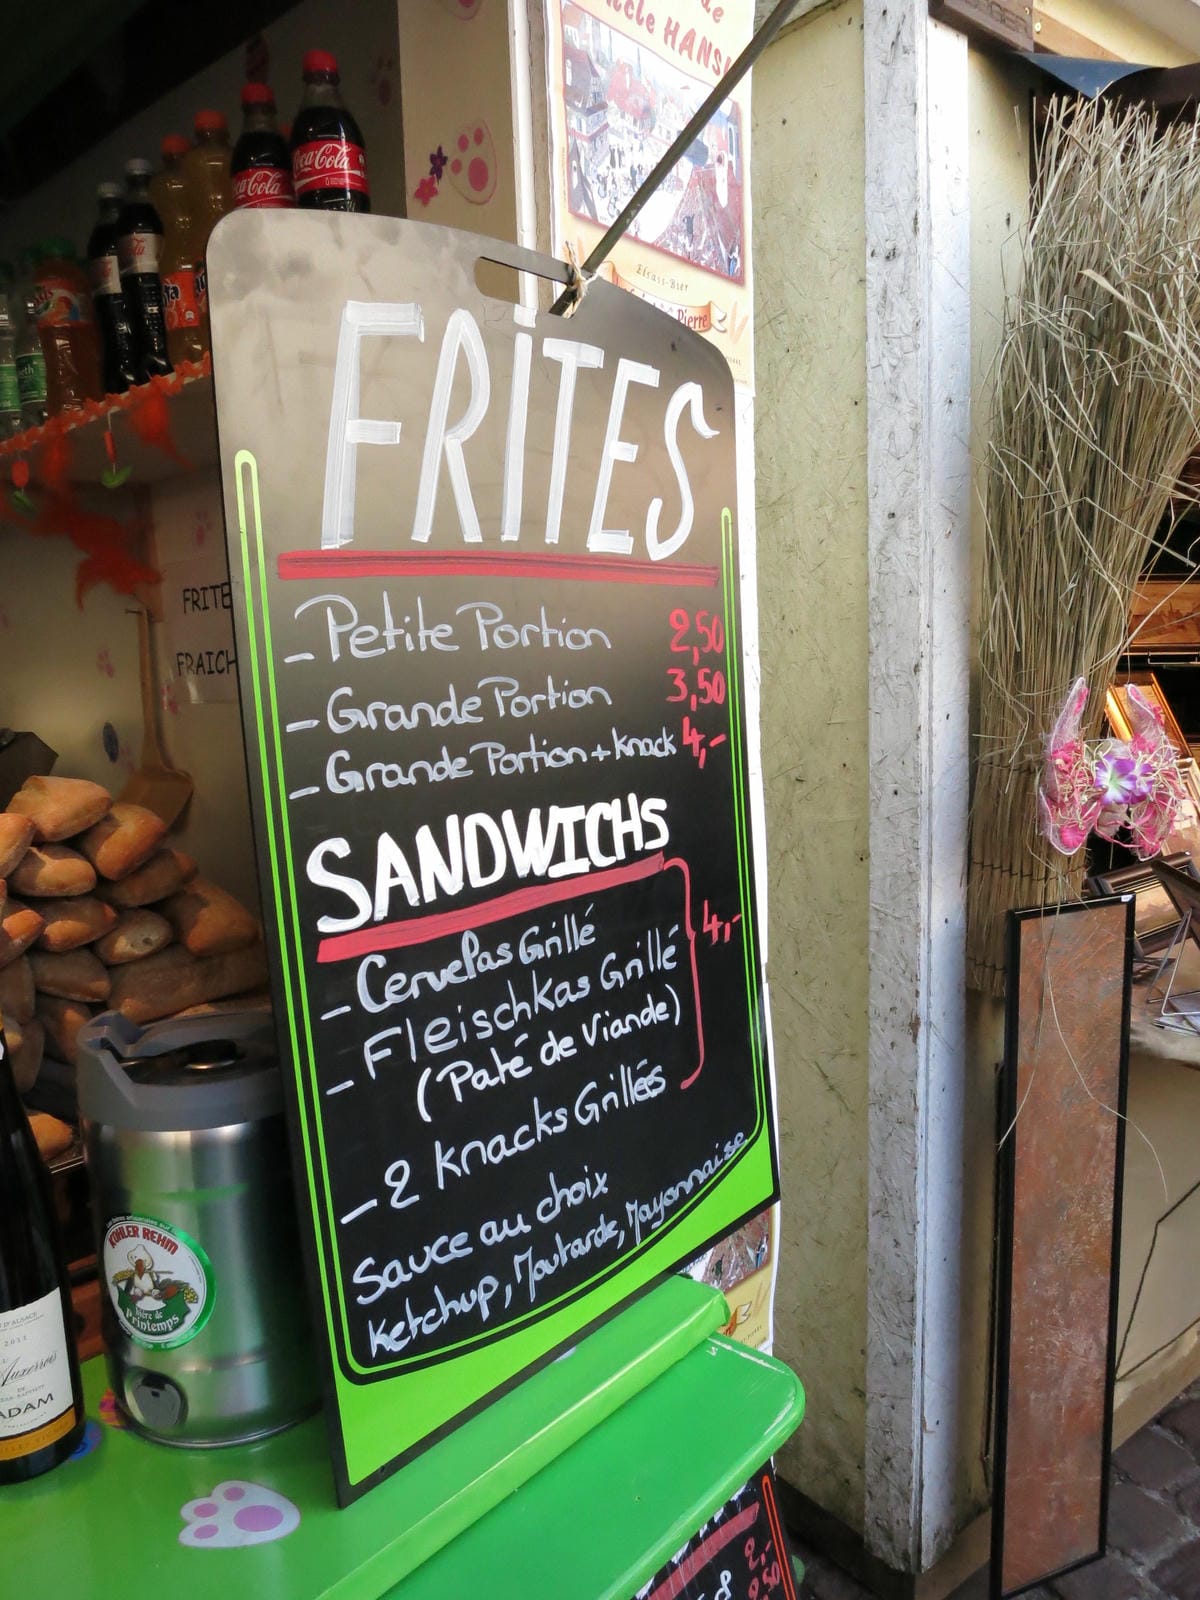 HANSI
Elsass-Bier
Pierre
Coca-Cola
Coca-Cola
FRITES
- Petite Portion 2,50
- Grande Portion 3,50
- Grande Portion + Knack 4,-
SANDWICHS
- Cervelas Grillé
- Fleischkas Grillé
(Paté de Viande)
- 2 Knacks Grillées
4,-
Sauce au choix
Ketchup, Moutarde, Mayonnaise
FRITE
FRAICH
KOHLER REHM
Bière de
Printemps
D'ALSACE
2011
Auxerrois
ADAM
2,-
2,50